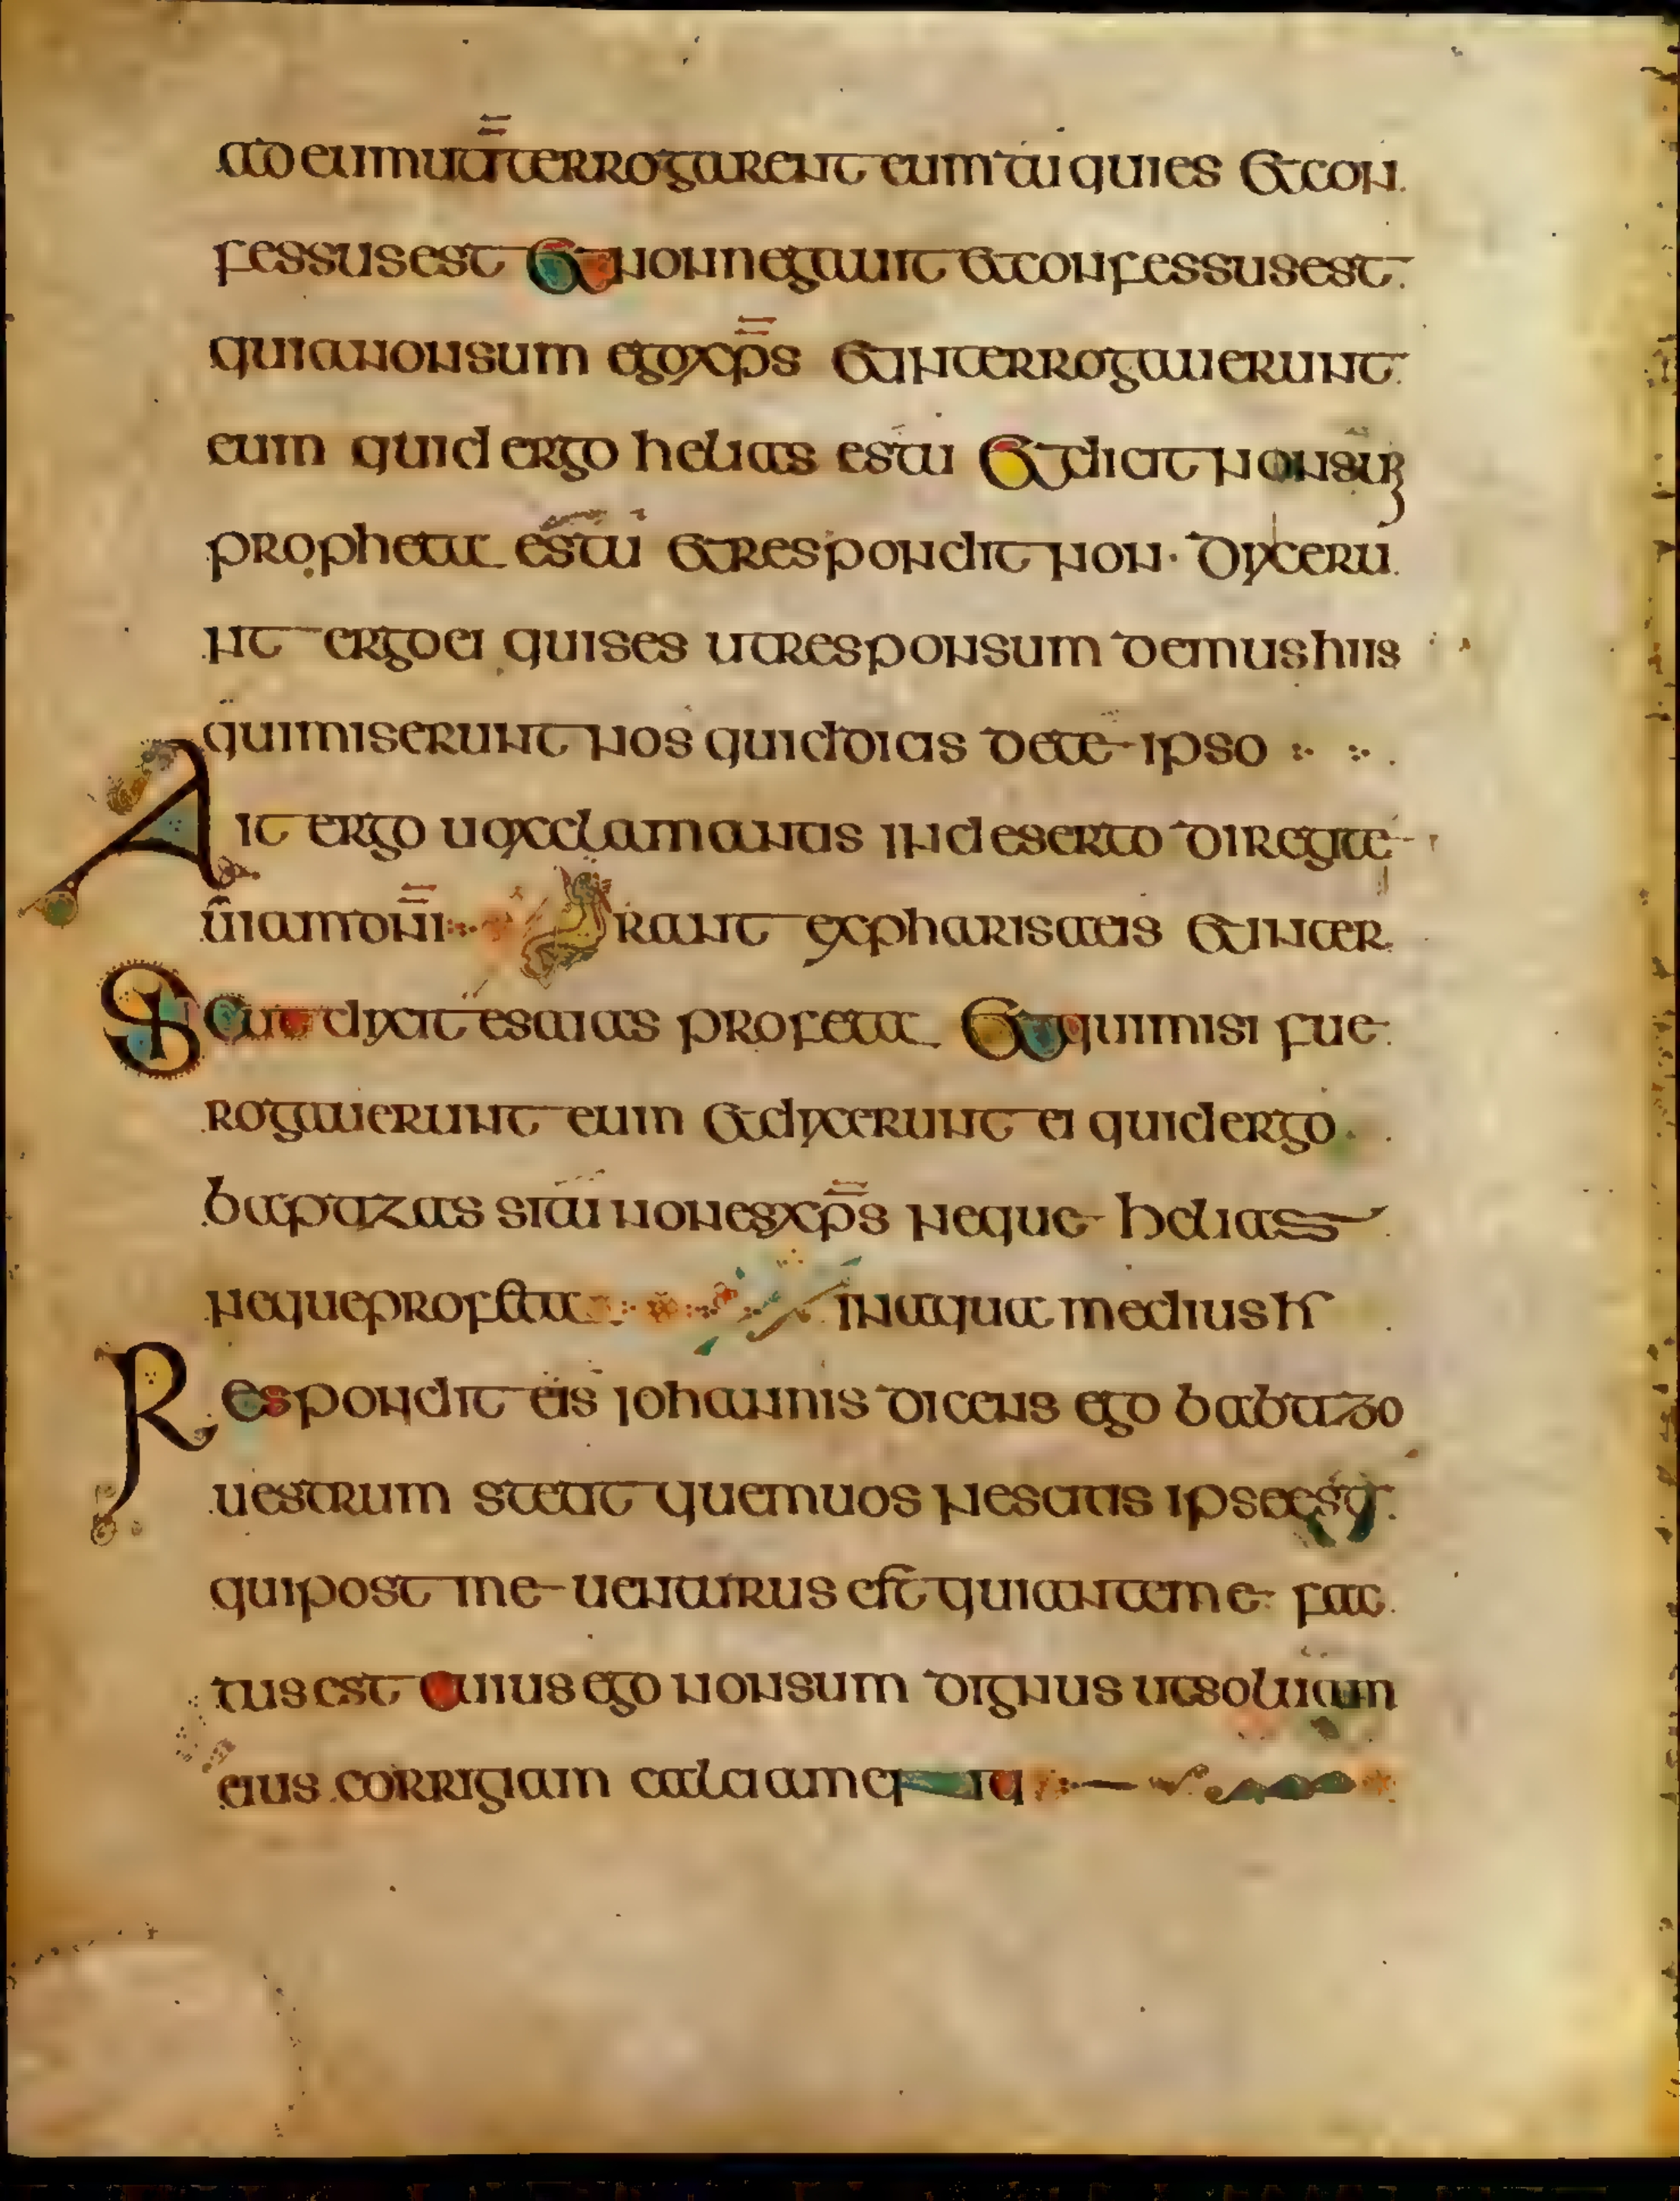 ad eum ut īterrogarent eum tu quies et con
fessus est et non negauit et confessus est
quia non sum ego xp̄s et interrogauerunt
eum quid ergo helias es tu et dicit non sum
propheta es tu et respondit non · dyxeru
nt ergo ei quis es ut responsum demus hiis
qui miserunt nos quid dicis de te ipso
Ait ergo uox clamantis in deserto diregite
uiam dn̄i erant ex pharisaeis et inter
Sicut dyxit esaias profeta et qui misi fue
rogauerunt eum et dyxerunt ei quid ergo
baptizas si tu non es xp̄s neque helias
neque profeta in aqua medius h
Respondit eis iohannis dicens ego babtizo
uestrum stetit quem uos nescitis ipse est
qui post me uenturus est qui ante me fac
tus est cuius ego non sum dignus ut soluam
eius corrigiam calciamenti